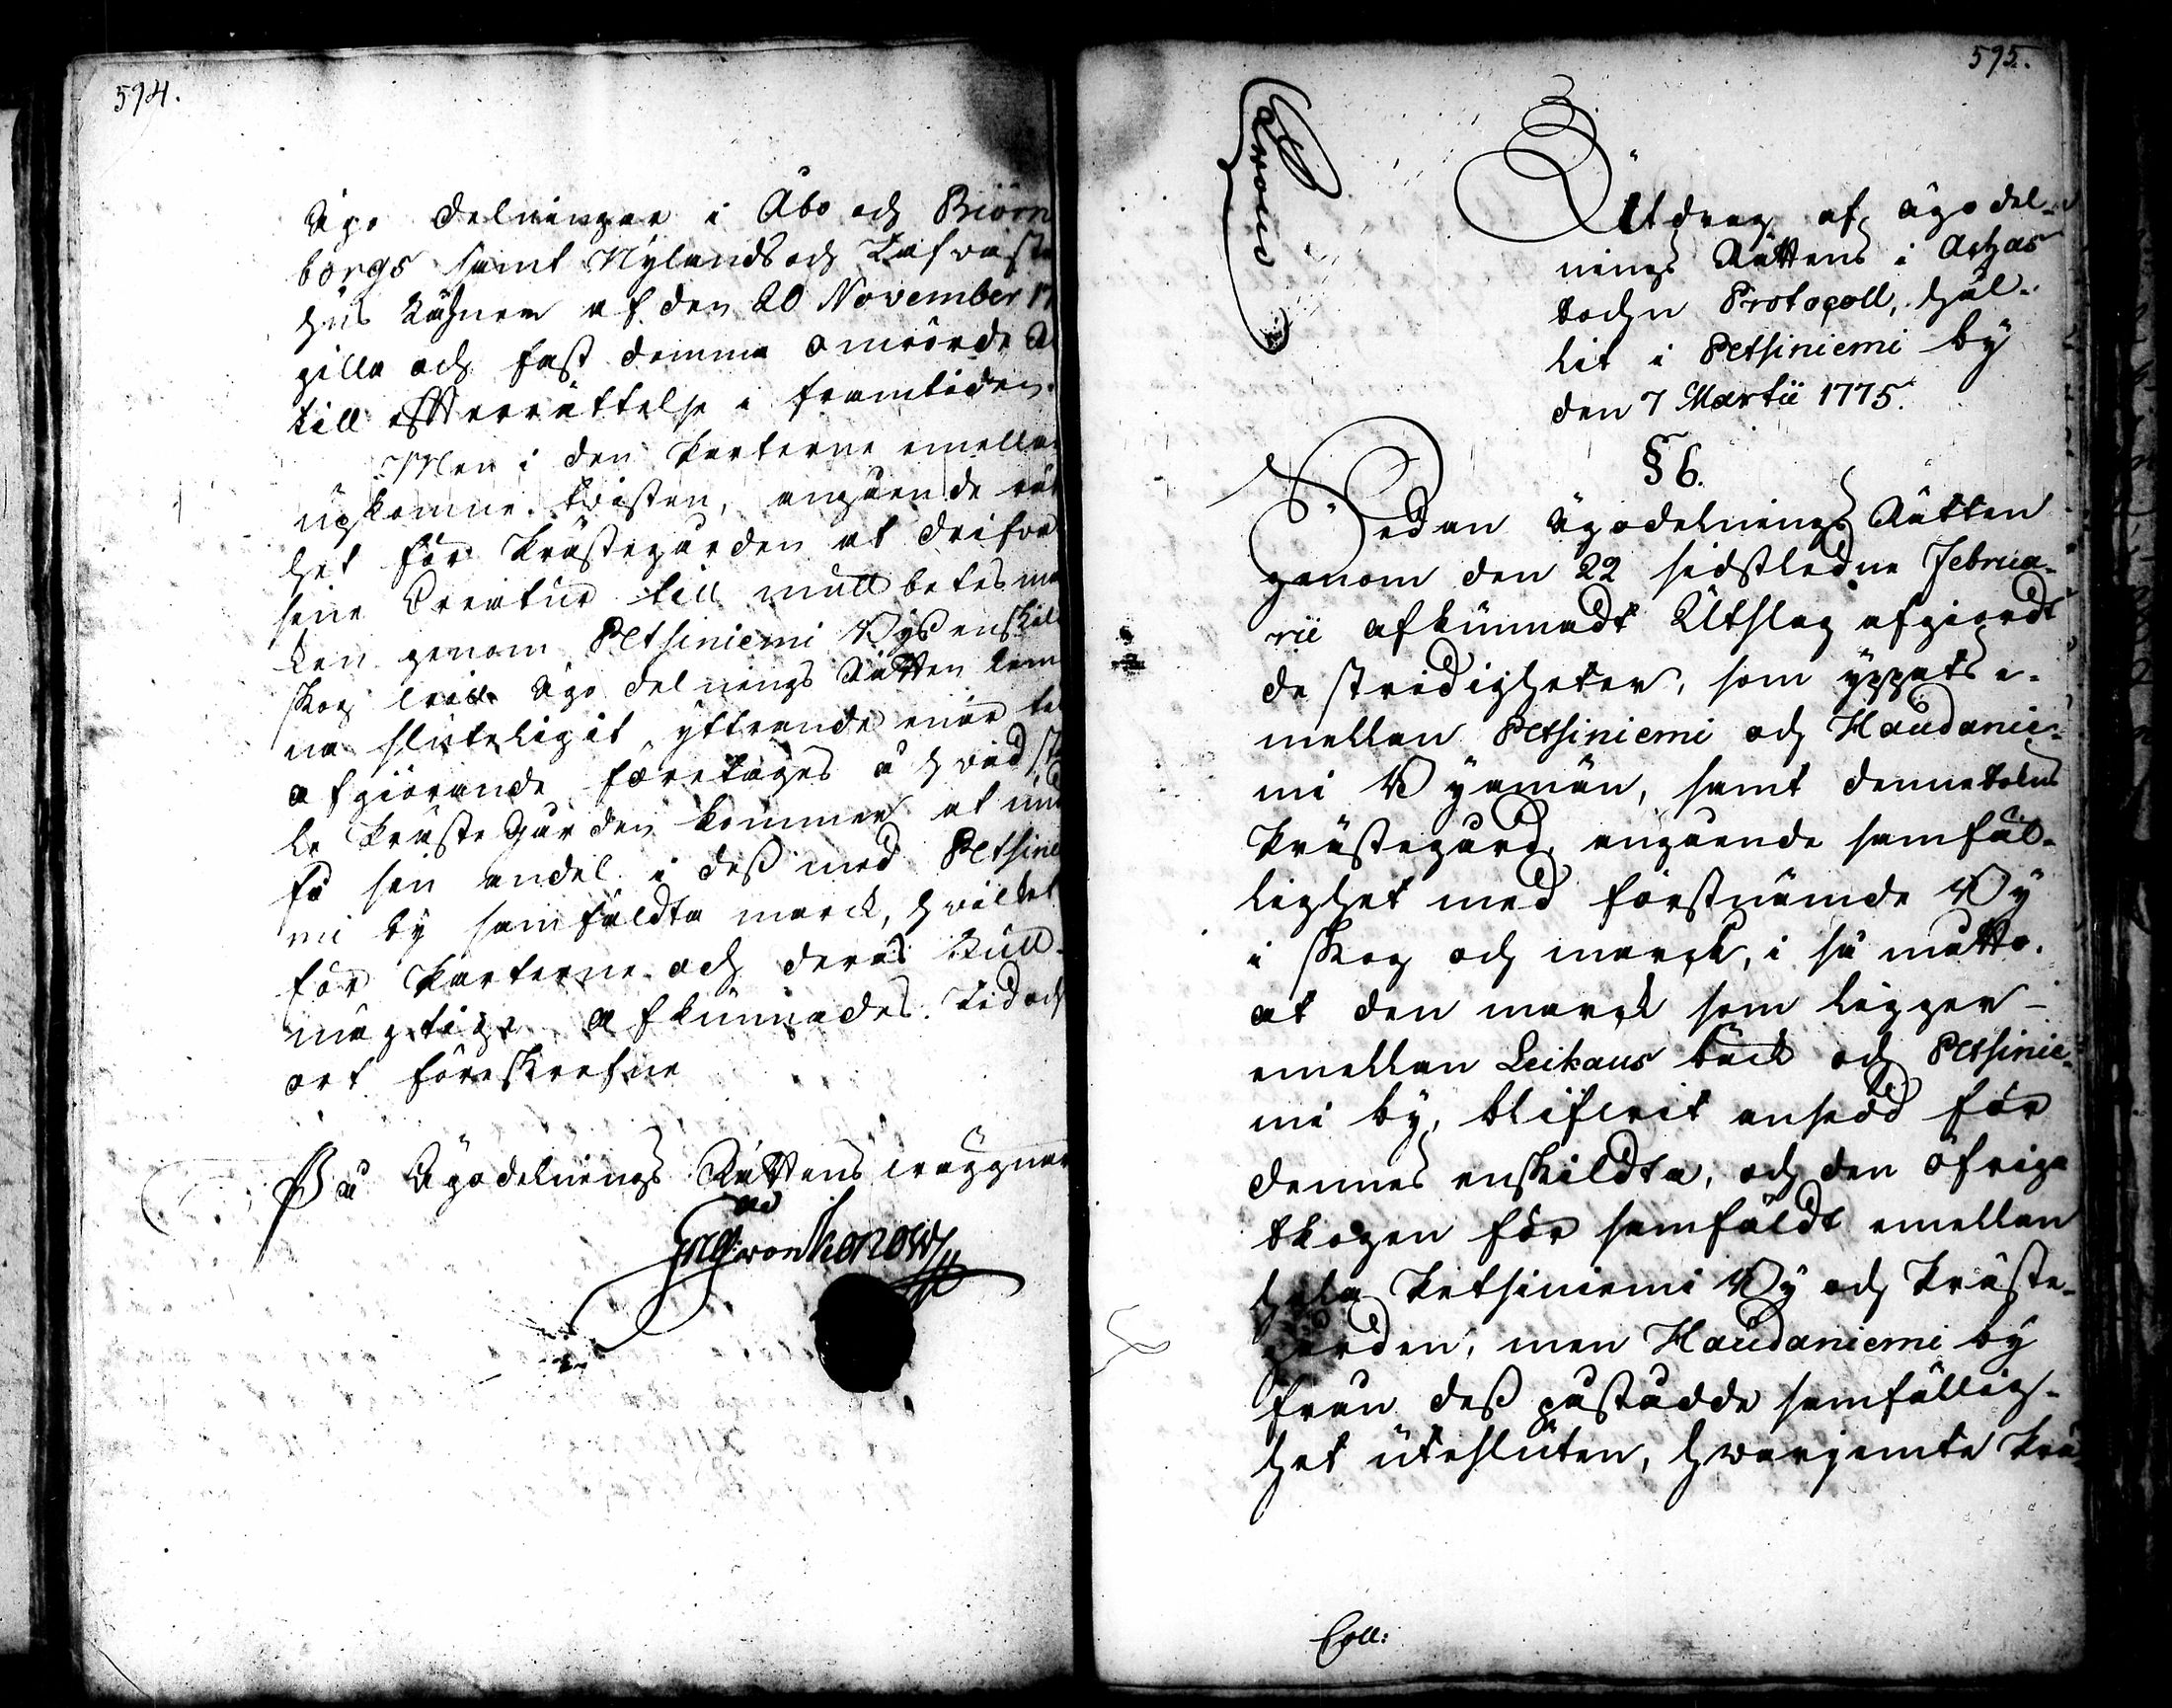 594.
Ägo delningar i Åbo och Biörne
borgs samt Nylands och Tafwaste
hus Lähnen af den 20 November 17
gilla och fast denna omrörde
till efterrättelse i framtiden.
Men i den Parterne emellan
upkomne twisten, angående rät
het för Prästegården at drifva
sine Creatur till mullbetes ma
ken genom Petsiniemi Bys enskil
skog lärer Ägo delnings Rätten läm
na sluteligit yttrande när til
afgiörande företages å hwad stä
le Prästegården kommer at und
få sin andel i dess med Petsinie
mi by samfäldta marck, hwilket
för Parterne och deras Full-
mägtige afkunnades. Tid och
ort föreskrefne
På Ägodelnings Rättens wägnar
595.
Utdrag af Ägodel-
nings Rättens i Achas
Sochn Protocoll, hål-
lit i Petsiniemi by
den 7 Martii 1775.
§ 6.
Sedan Ägodelnings Rätten
genom den 22 sidstledne Februa-
rii afkunnadt Utslag afgiordt
de stridigheter, som yppats e-
mellan Petsiniemi och Haudanie-
mi Byamän, samt Sochnens
Prästegård, angående samfäl-
lighet med förstnämde By
i skog och marck, i så motto,
at den marck som ligger
emellan Leikaus back och Petsinie-
mi by, blifwit ansedd för
dennes enskildta, och den öfriga
skogen för samfäldt emellan
hela Petsiniemi By och Präste-
gården, men Haudaniemi by
från dess påstådde samfällig-
het utesluten, hwarjemte Prä-
Coll: